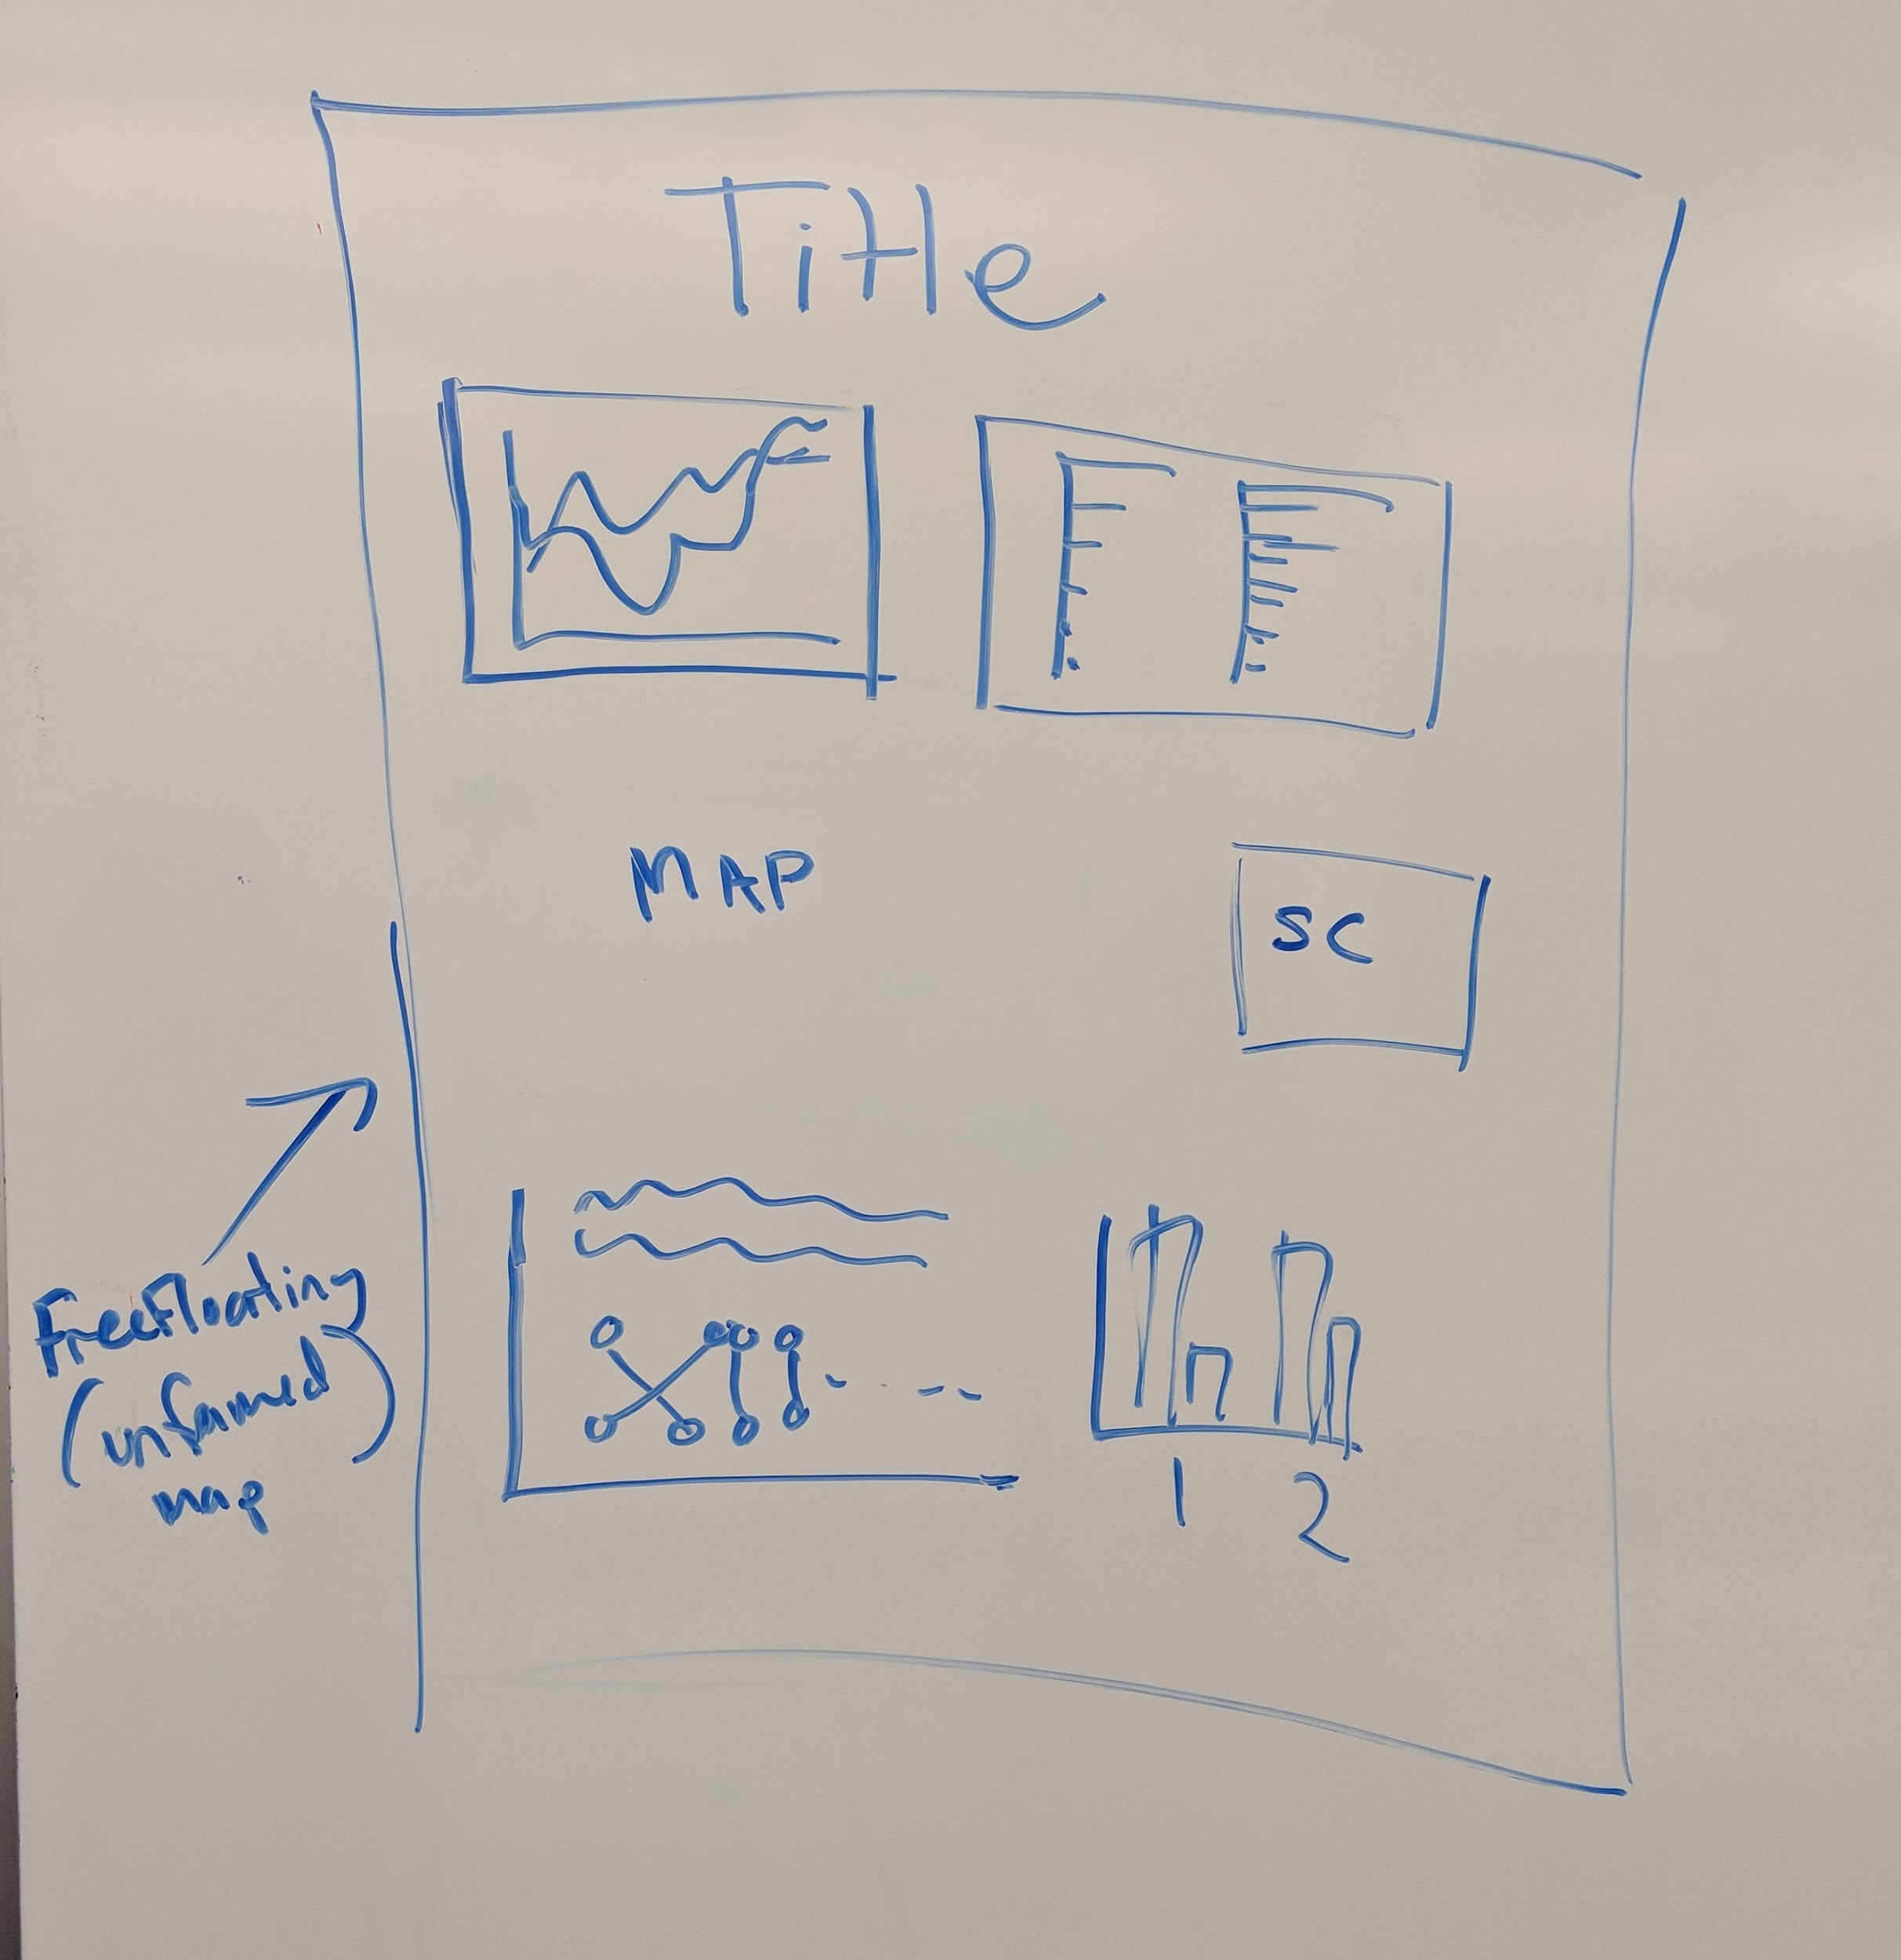 Title
MAP
SC
FreeFloating
(unframed)
map
1
2